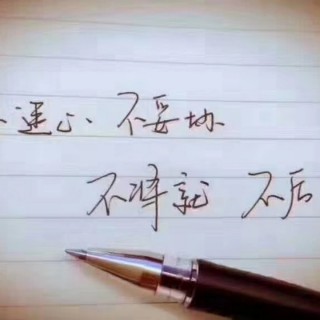 違心 不妥协
不将就 不后